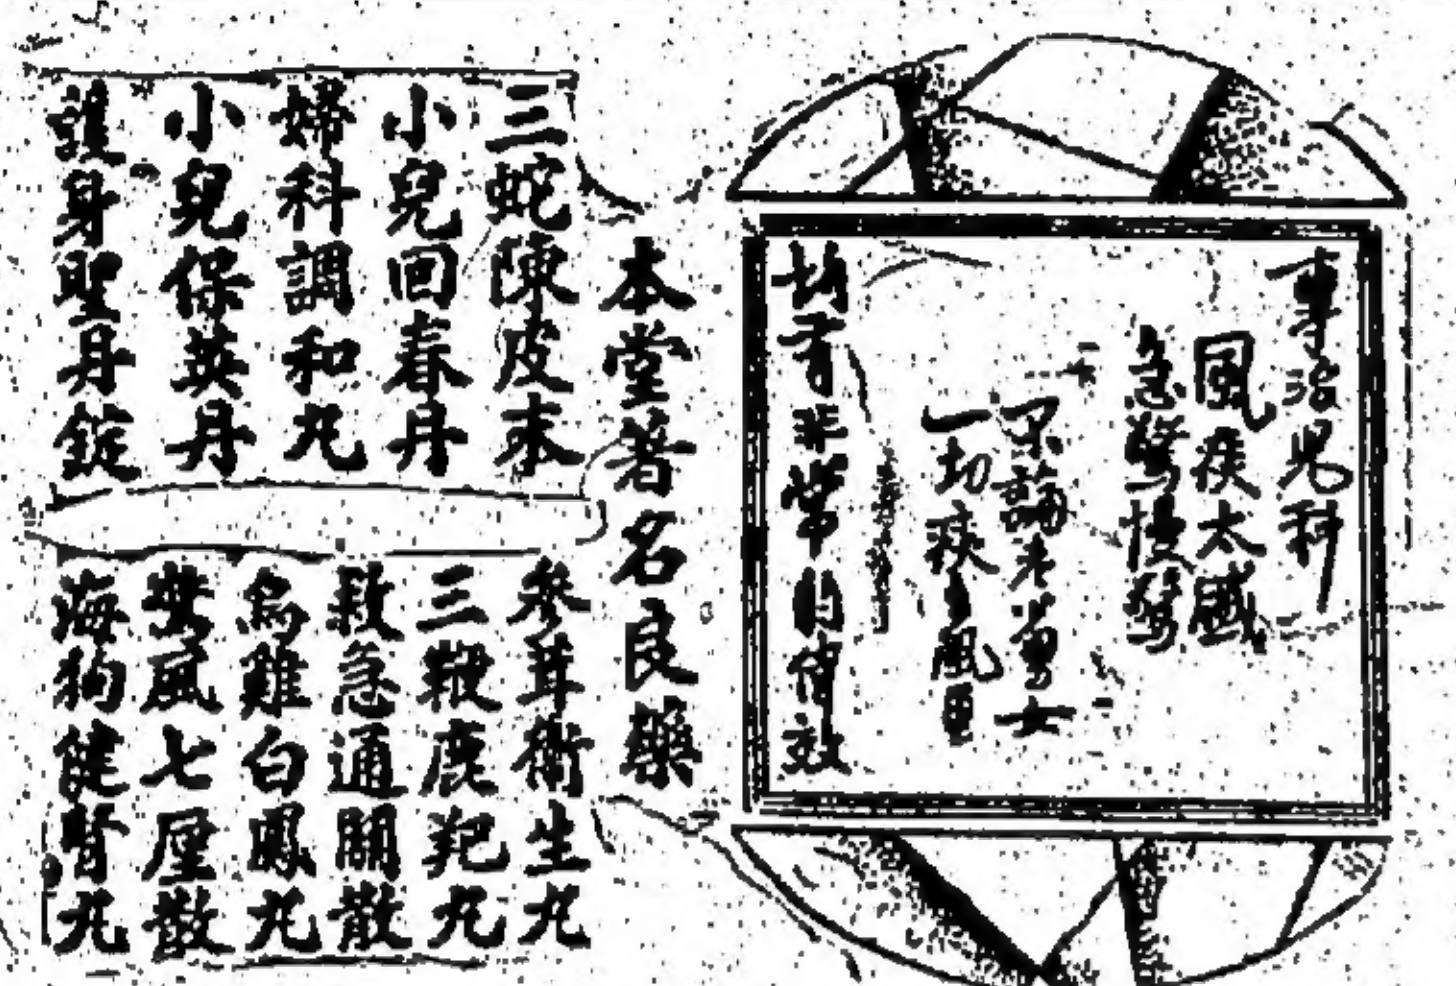 專治兒科
風痰太盛
急驚慢驚
不論老若男女
一切痰多風重
均有非常的偉效
本堂著名良藥
三蛇陳皮末
小兒回春丹
婦科調和丸
小兒保英丹
護身聖丹錠
參茸衛生丸
三鞭鹿羓丸
救急通關散
烏雞白鳳丸
驚風七厘散
海狗健腎丸